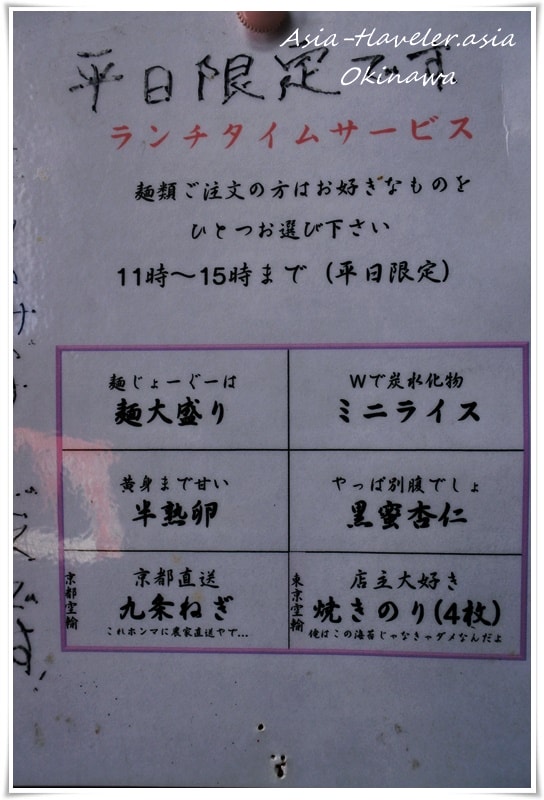 Asia-Traveler.asia
Okinawa
平日限定です
ランチタイムサービス
麺類ご注文の方はお好きなものを
ひとつお選び下さい
11時〜15時まで (平日限定)
麺じょーぐーは
麺大盛り
Wで炭水化物
ミニライス
黄身まで甘い
半熟卵
やっぱ別腹でしょ
黒蜜杏仁
京都空輸
京都直送
九条ねぎ
これホンマに農家直送やで...
東京空輸
店主大好き
焼きのり(4枚)
俺はこの海苔じゃなきゃダメなんだよ